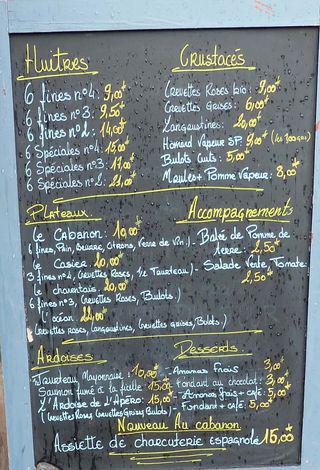 Huîtres
6 fines n°4: 9,00€
6 fines n°3: 9,50€
6 fines n°2: 14,00€
6 Spéciales n°4: 15,00€
6 Spéciales n°3: 17,00€
6 Spéciales n°2: 21,00€
Crustacés
Crevettes Roses bio: 9,00€
Crevettes Grises: 6,00€
Langoustines: 20,00€
Homard Vapeur SP: 9,00€ (les 100grs)
Bulots Cuits: 5,00€
Moules + Pomme Vapeur: 8,00€
Plateaux
Le Cabanon: 10,00€
6 fines, Pain, Beurre, Citrons, Verre de Vin.)
Le Casier 20,00€
3 fines n°4, Crevettes Roses, 1/2 Tourteau.)
Le charentais: 20,00€
6 fines n°3, Crevettes Roses, Bulots.)
L'océan 22,00€
Crevettes roses, Langoustines, Crevettes grises, Bulots.)
Accompagnements
- Balée de Pomme de
terre: 2,50€
- Salade Verte, Tomate:
2,50€
Ardoises
Tourteau Mayonnaise: 10,00€
Saumon fumé à la ficelle 15,00€
L'Ardoise de L'Apéro: 15,00€
(Crevettes Roses Crevettes Grises Bulots)
Desserts
- Ananas Frais 3,00€
- Fondant au chocolat: 3,00€
- Ananas frais + café: 5,00€
- Fondant + café: 5,00€
Nouveau Au cabanon
Assiette de charcuterie espagnole 15,00€